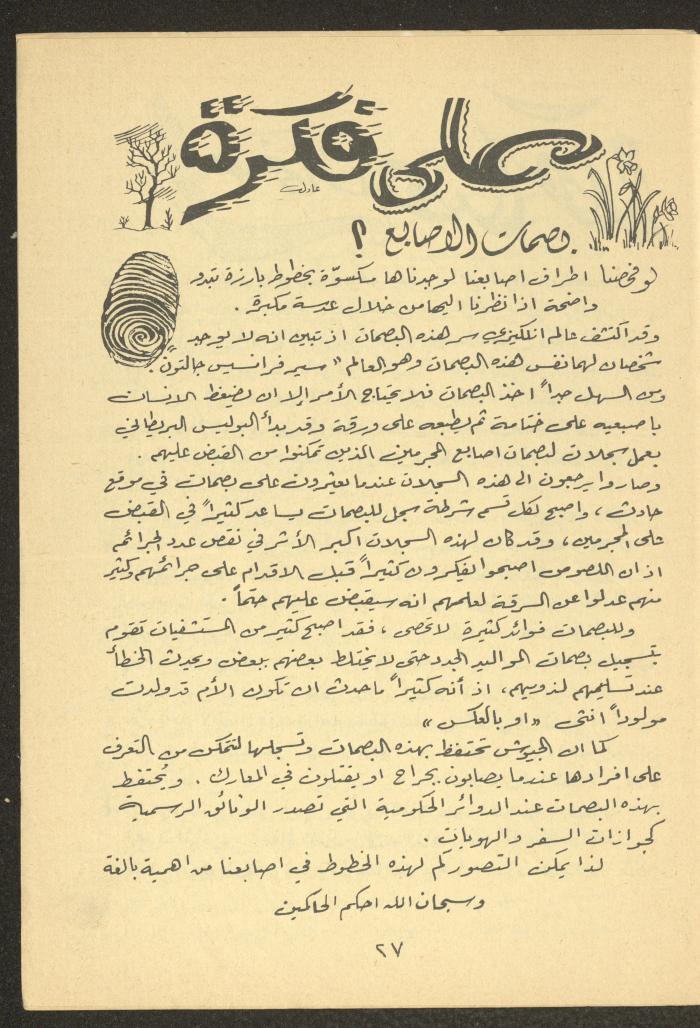 على فكرة
عادل
بصمات الاصابع ؟
لو فحصنا اطراف اصابعنا لوجدناها مكسوّة بخطوط بارزة تبدو
واضحة اذا نظرنا اليها من خلال عدسة مكبرة .
وقد اكتشف عالم انكليزي سر هذه البصمات اذ تبين انه لا يوجد
شخصان لهما نفس هذه البصمات وهو العالم " سير فرانسيس جالتون " .
ومن السهل جداً اخذ البصمات فلا يحتاج الأمر إلا ان يضغط الانسان
باصبعيه على ختامة ثم يطبعه على ورقة وقد بدأ البوليس البريطاني
بعمل سجلات لبصمات اصابع المجرمين الذين تمكنوا من القبض عليهم .
وصاروا يرجعون الى هذه السجلات عندما يعثرون على بصمات في موقع
حادث ، واصبح لكل قسم شرطة سجل للبصمات يساعد كثيراً في القبض
على المجرمين ، وقد كان لهذه السجلات اكبر الأثر في نقص عدد الجرائم
اذ ان اللصوص اصبحوا يفكرون كثيراً قبل الاقدام على جرائمهم وكثير
منهم عدلوا عن السرقة لعلمهم انه سيقبض عليهم حتماً .
وللبصمات فوائد كثيرة لا تحصى ، فقد اصبح كثير من المستشفيات تقوم
بتسجيل بصمات المواليد الجدد حتى لا يختلط بعضهم ببعض ويحدث الخطأ
عند تسليمهم لذويهم ، اذ أنه كثيراً ما حدث ان تكون الأم قد ولدت
مولوداً انثى " او بالعكس "
كما ان الجيوش تحتفظ بهذه البصمات وتسجلها لتتمكن من التعرف
على افرادها عندما يصابون بجراح او يقتلون في المعارك . ويُحتفظ
بهذه البصمات عند الدوائر الحكومية التي تصدر الوثائق الرسمية
كجوازات السفر والهويات .
لذا يمكن التصور كم لهذه الخطوط في اصابعنا من اهمية بالغة
وسبحان الله احكم الحاكمين
٢٧